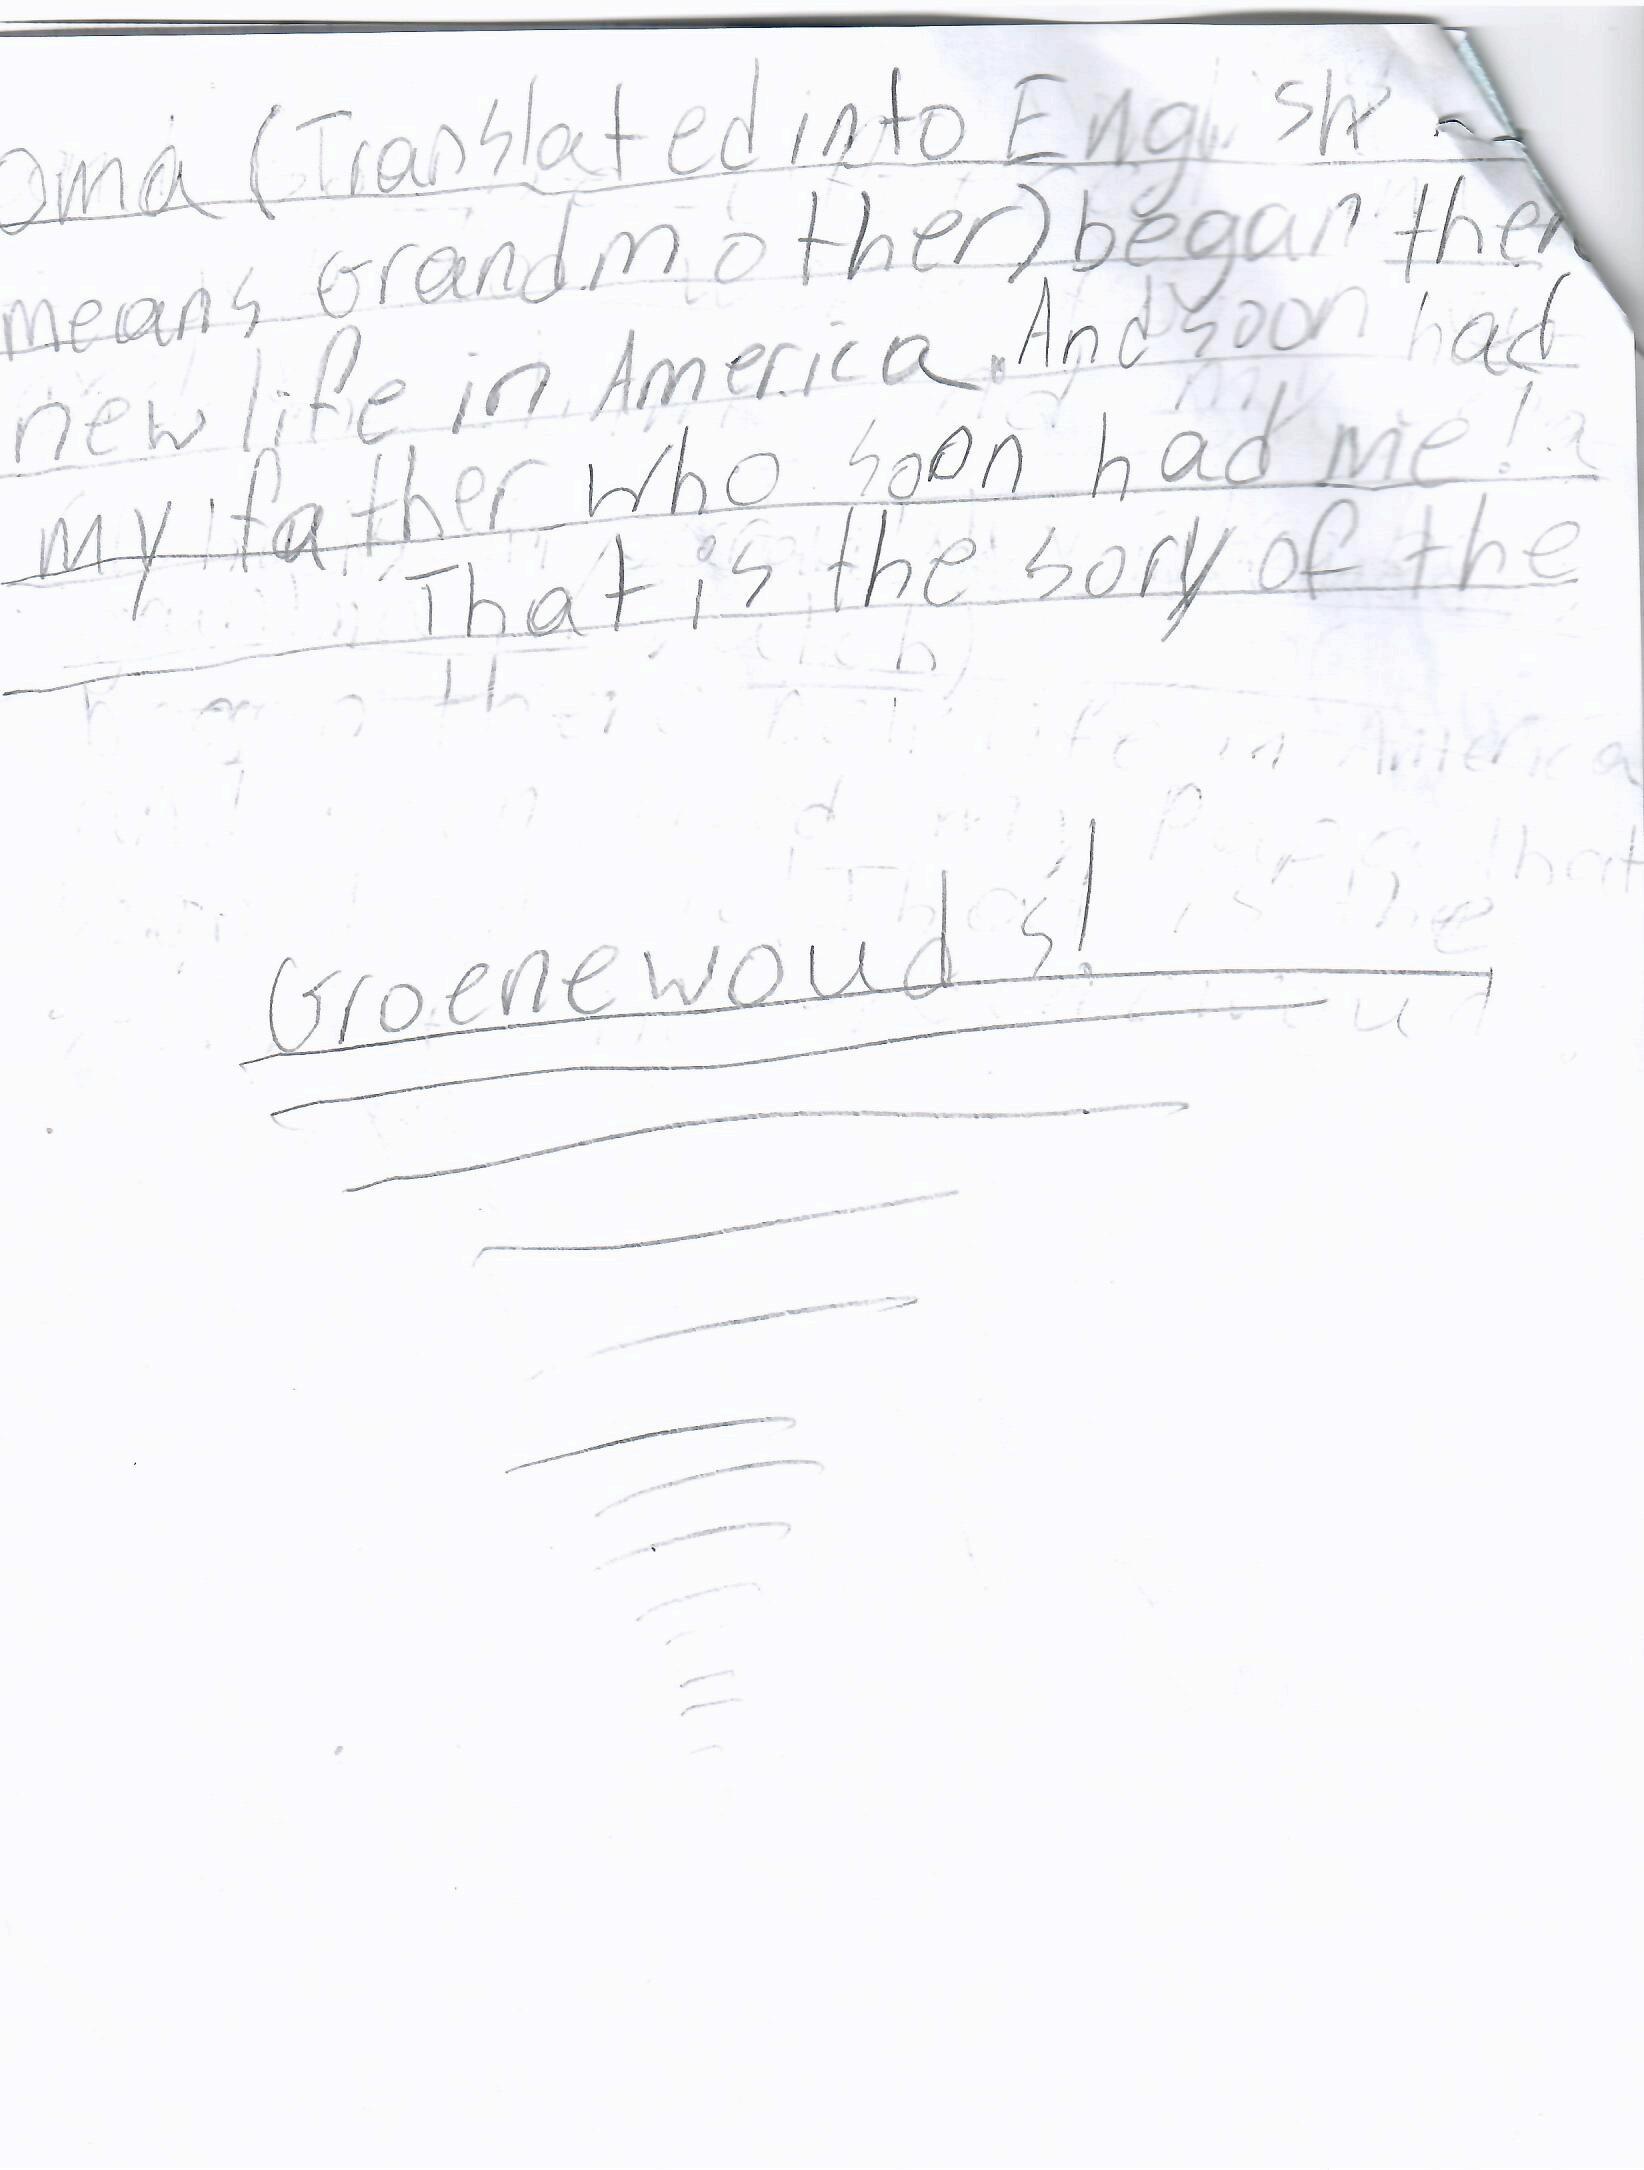 oma (Translated into English
means Grandmother) began their
new life in America. And soon had
my father who soon had me!
That is the sory of the
Groenewouds!